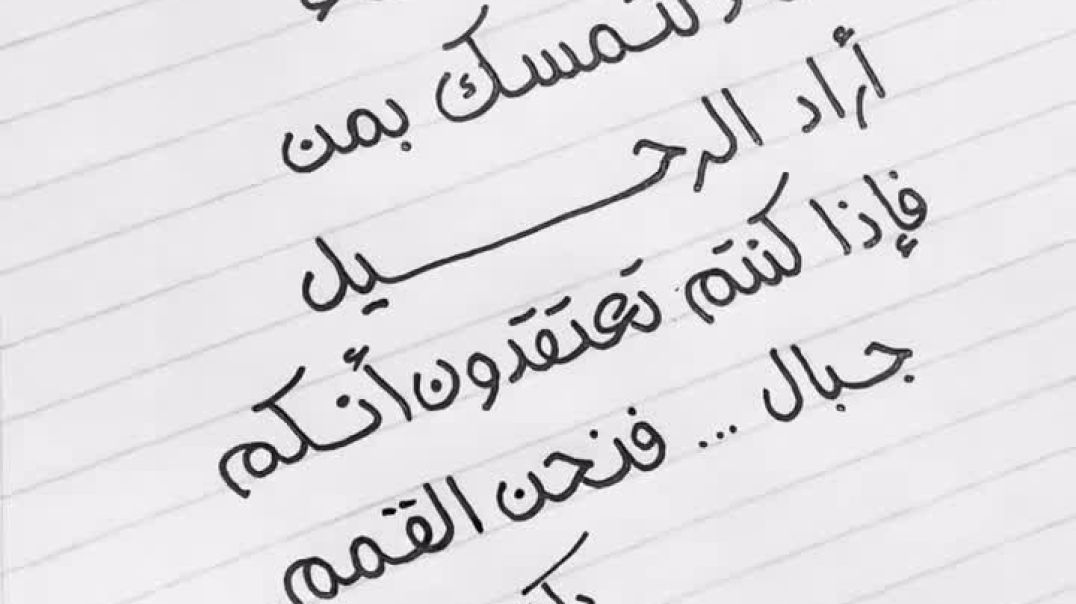 نتمسك بمن
أراد الرحـــــيل
فإذا كنتم تعتقدون أنكم
جبال ... فنحن القمم